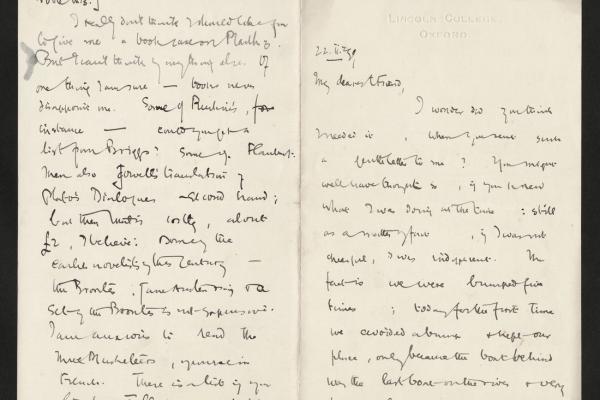 I really don't think I should like you
to give me a bookcase or Plants.
But I can't think of anything else. Of
one thing I am sure — books never
disappoint me. Some of Ruskin's, for
instance — could you get a
list from Briggs? Some of Flaubert.
Then also Jowett's translation of
Plato's Dialogues — second hand;
but then that is costly, about
£2, I believe: Some of the
earlier novelists of this Century —
the Brontes, Jane Austen
set of the Brontes is not expensive.
I am anxious to read the
Three Musketeers, in
French. There is a list if you
LINCOLN COLLEGE,
OXFORD.
22.II.99
My dearest Friend,
I wonder did you think
I needed it, when you sent such
a gentle letter to me? You might
well have thought so, if you knew
what I was doing at the time: still
as a matter of fact, if I was not
cheerful, I was indifferent. The
fact is we were bumped five
times; today for the first time
we avoided a bump & kept our
place, only because the boat behind
was the last boat on the river & very